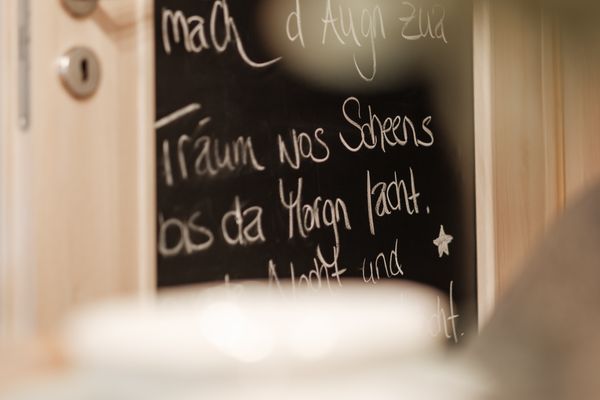 mach d'Augn zua
Träum wos Scheens
bis da Morgn lacht.
Nocht und